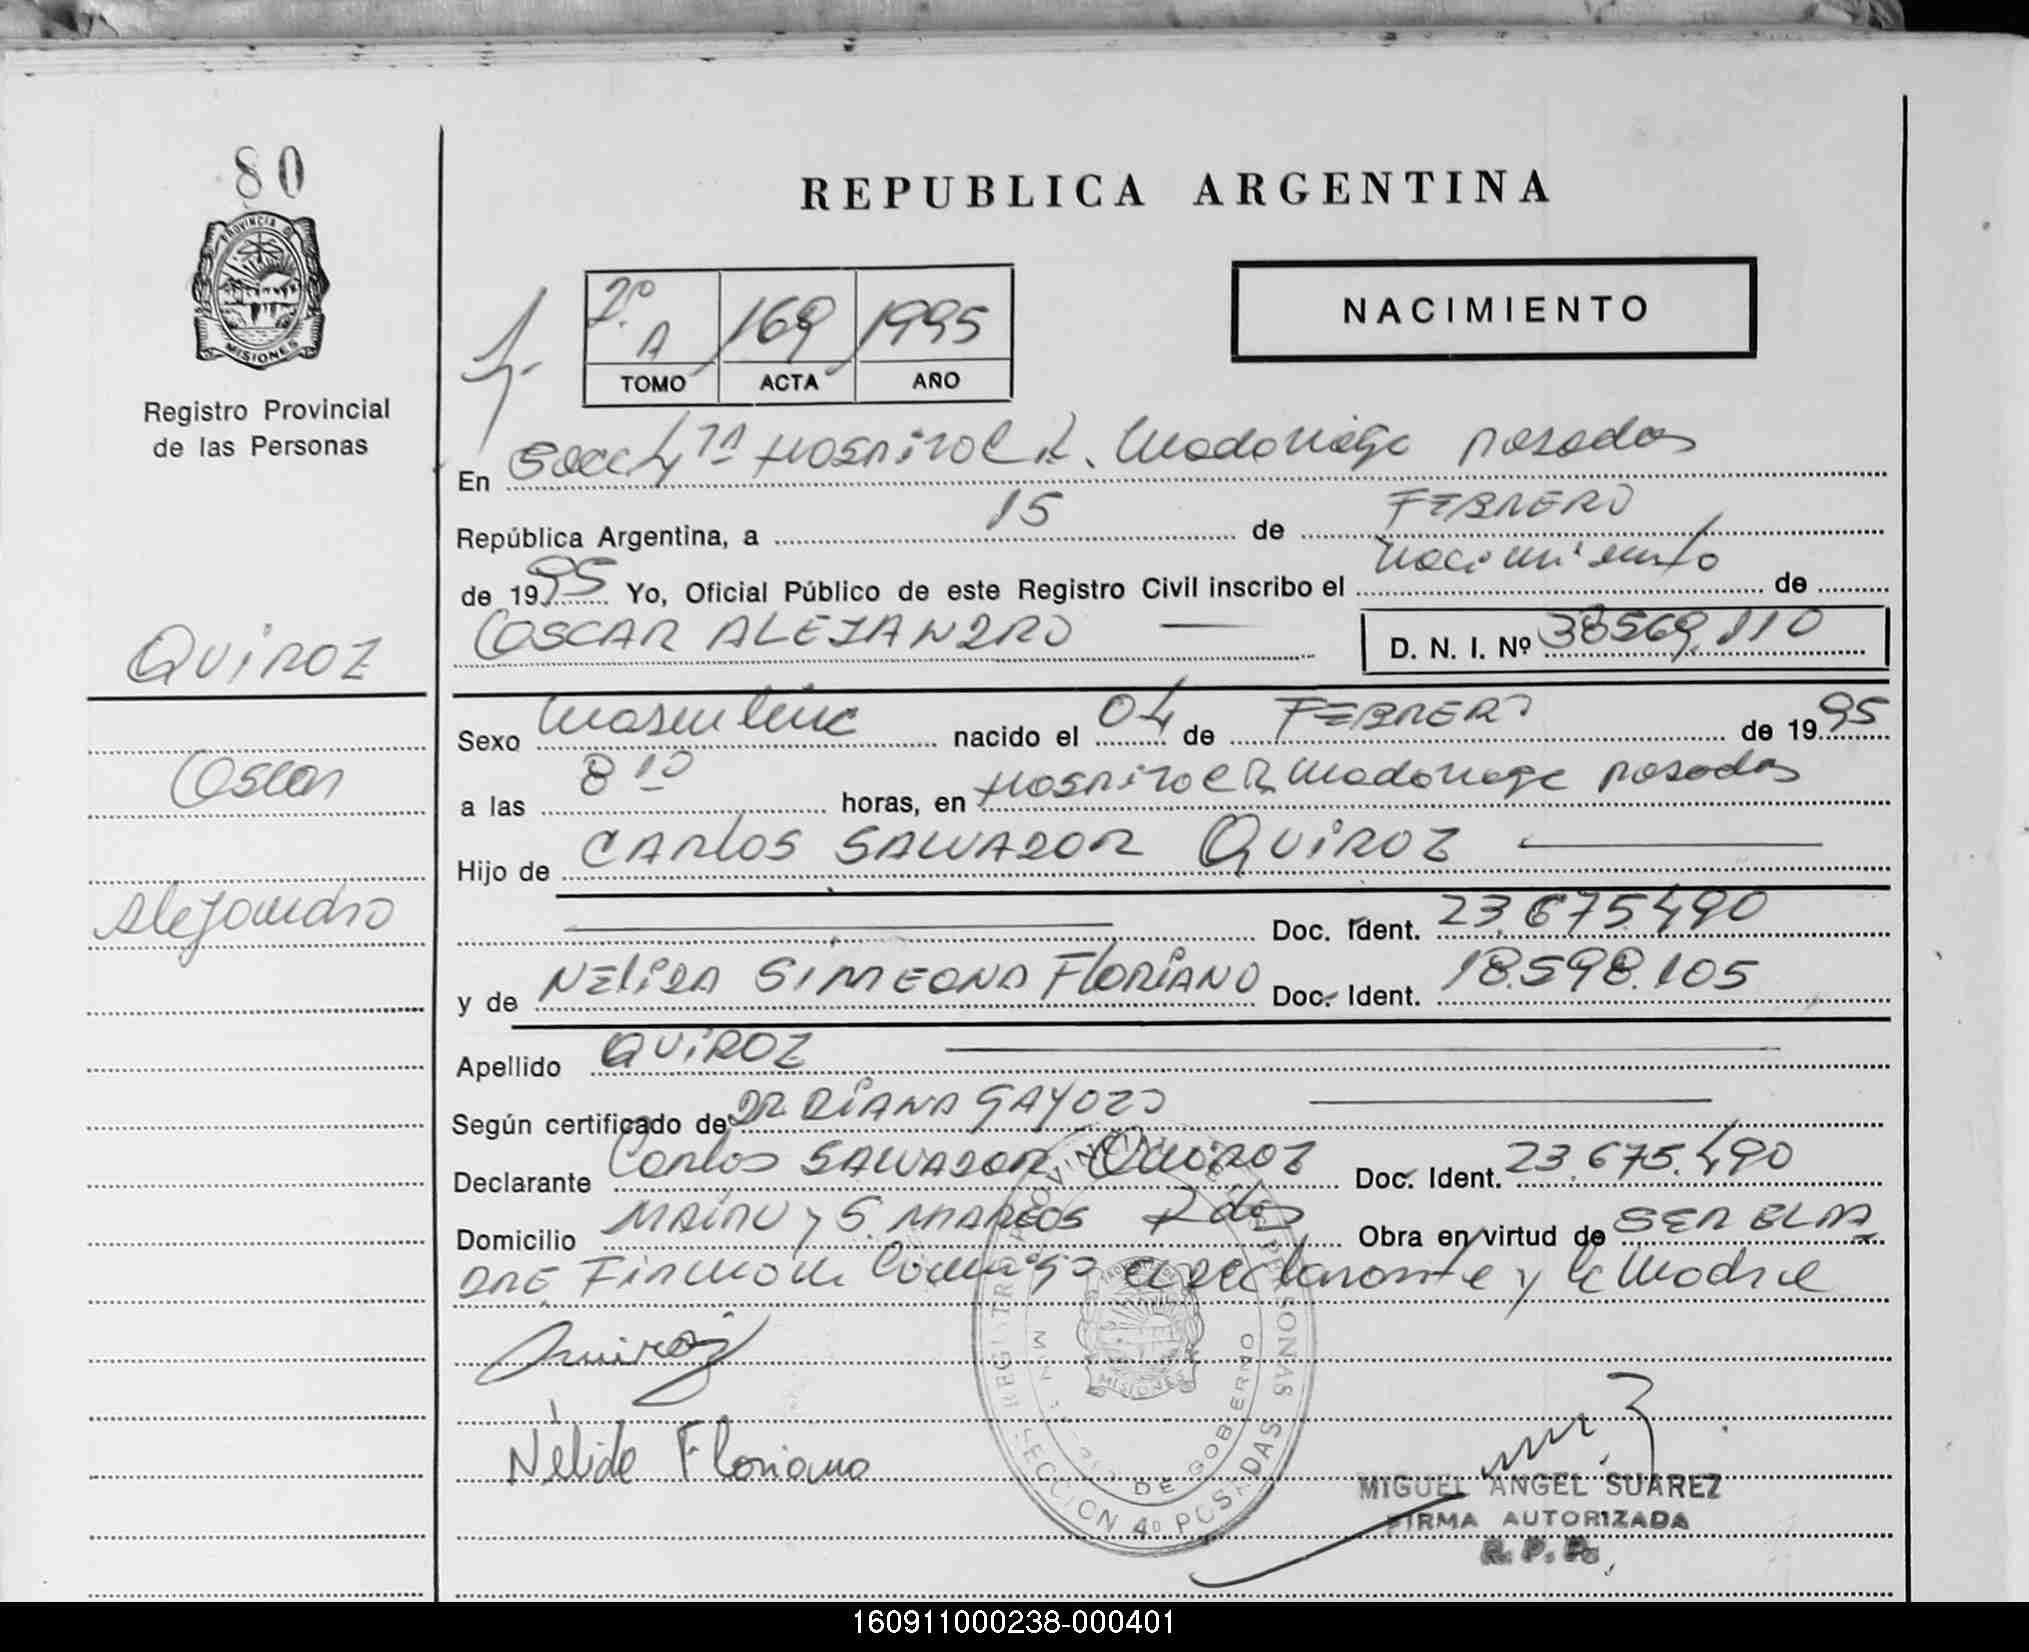 80
PROVINCIA D
MISIONES
Registro Provincial
de las Personas
REPUBLICA ARGENTINA
2º A 169 1995
TOMO ACTA AÑO
NACIMIENTO
En Secc 4TA Hospital R. Madariaga posadas
República Argentina, a 15 de FEBRERO
de 1995 Yo, Oficial Público de este Registro Civil inscribo el nacimiento de
OSCAR ALEJANDRO D. N. I. Nº 38569.110
QUIROZ
Oscar
Alejandro
Sexo masculino nacido el 04 de FEBRERO de 1995
a las 8 10 horas, en Hospital R. Madariaga posadas
Hijo de CARLOS SALVADOR QUIROZ
Doc. Ident. 23.675.490
y de NELIDA SIMEONA FLORIANO Doc. Ident. 18.598.105
Apellido QUIROZ
Según certificado de DR DIANA GAYOZO
Declarante Carlos SALVADOR QUIROZ Doc. Ident. 23.675.490
Domicilio MAIPU y S. MARCOS Pdas Obra en virtud de SER EL PA
DRE Firman conmigo el declarante y la madre
Quiroz
Nélida Floriano
REGISTRO PROVINCIAL DE LAS PERSONAS
MINISTERIO DE GOBIERNO
MISIONES
SECCION 4º POSADAS
MIGUEL ANGEL SUAREZ
FIRMA AUTORIZADA
R. P. P.
160911000238-000401